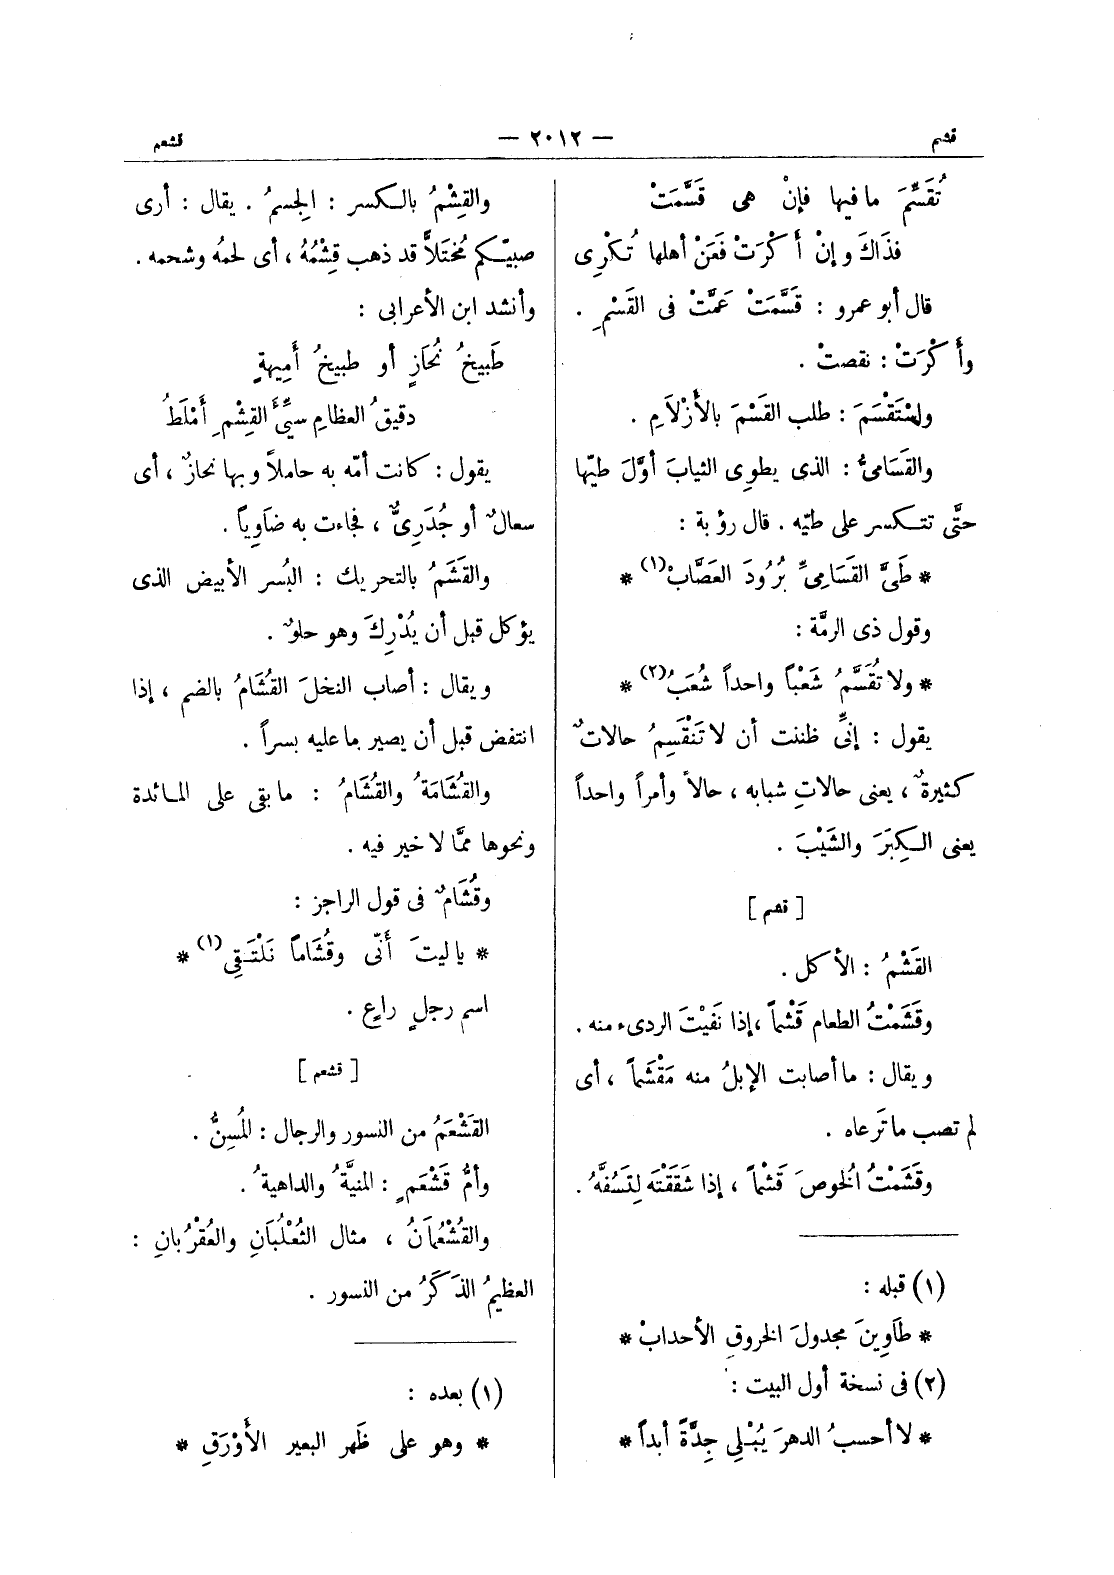 قشم
— ٢٠١٢ —
قشعم
تُقَسِّمَ ما فيها فإنْ هى قَسَّمَتْ
فذَاكَ وإنْ أكْرَتْ فعَنْ أهلها تُكْرِى
قال أبو عمرو : قَسَّمَتْ عَمَّتْ فى القَسْمِ .
وأكْرَتْ : نقصتْ .
واسْتَقْسَمَ : طلب القَسْمَ بالأَزْلَامِ .
والقَسَامىُّ : الذى يطوِى الثيابَ أوَّلَ طيّها
حتَّى تتكسر على طيّه . قال رؤبة :
* طَىَّ القَسَامِىِّ بُرُودَ العَصَّابْ(١) *
وقول ذى الرمَّة :
* ولا تُقَسِّمُ شَعْباً واحداً شُعَبُ(٢) *
يقول : إنِّى ظننت أن لا تَنْقَسِمُ حالاتٌ
كثيرةٌ ، يعنى حالاتِ شبابه ، حالاً وأمراً واحداً
يعنى الكِبَرَ والشَيْبَ .
[ قشم ]
القَشْمُ : الأكل .
وقَشَمْتُ الطعام قَشْماً ، إذا نَفَيْتَ الردىء منه .
ويقال : ما أصابت الإبلُ منه مَقْشَماً ، أى
لم تصب ما تَرعاه .
وقَشَمْتُ الخوصَ قَشْماً ، إذا شَقَقْتَه لِتَسُفَّهُ .
(١) قبله :
* طَاوِينَ مجدولَ الخروقِ الأحدابْ *
(٢) فى نسخة أول البيت :
* لا أحسبُ الدهرَ يُبْلِى جِدَّةً أبداً *
والقِشْمُ بالكسر : الجِسمُ . يقال : أرى
صبيّكم مُخْتَلاًّ قد ذهب قِشْمُهُ ، أى لحمُهُ وشحمه .
وأنشد ابن الأعرابى :
طَبيخُ نُحَازٍ أو طبيخُ أَمِيهةٍ
دقيقُ العظامِ سيِّئُ القِشْمِ أَمْلَطُ
يقول : كانت أمّه به حاملاً وبها نحازٌ ، أى
سعالٌ أو جُدَرِىٌّ ، فجاءت به ضَاوِياً .
والقَشَمُ بالتحريك : البُسر الأبيض الذى
يؤكل قبل أن يُدْرِكَ وهو حلوٌ .
ويقال : أصاب النخلَ القُشَامُ بالضم ، إذا
انتفض قبل أن يصير ما عليه بسراً .
والقُشَامَةُ والقُشَامُ : ما بقى على المائدة
ونحوها ممَّا لا خير فيه .
وقُشَامٌ فى قول الراجز :
* ياليتَ أَنّى وقُشَاماً نَلْتَقِى(١) *
اسم رجلٍ راعٍ .
[ قشعم ]
القَشْعَمُ من النسور والرجال : المُسِنُّ .
وأمُّ قَشْعَمٍ : المنيَّةُ والداهيةُ .
والقُشْعُمَانُ ، مثال الثُعْلُبَانِ والعُقْرُبانِ :
العظيمُ الذَكَرُ من النسور .
(١) بعده :
* وهو على ظَهر البعير الأَوْرَقِ *